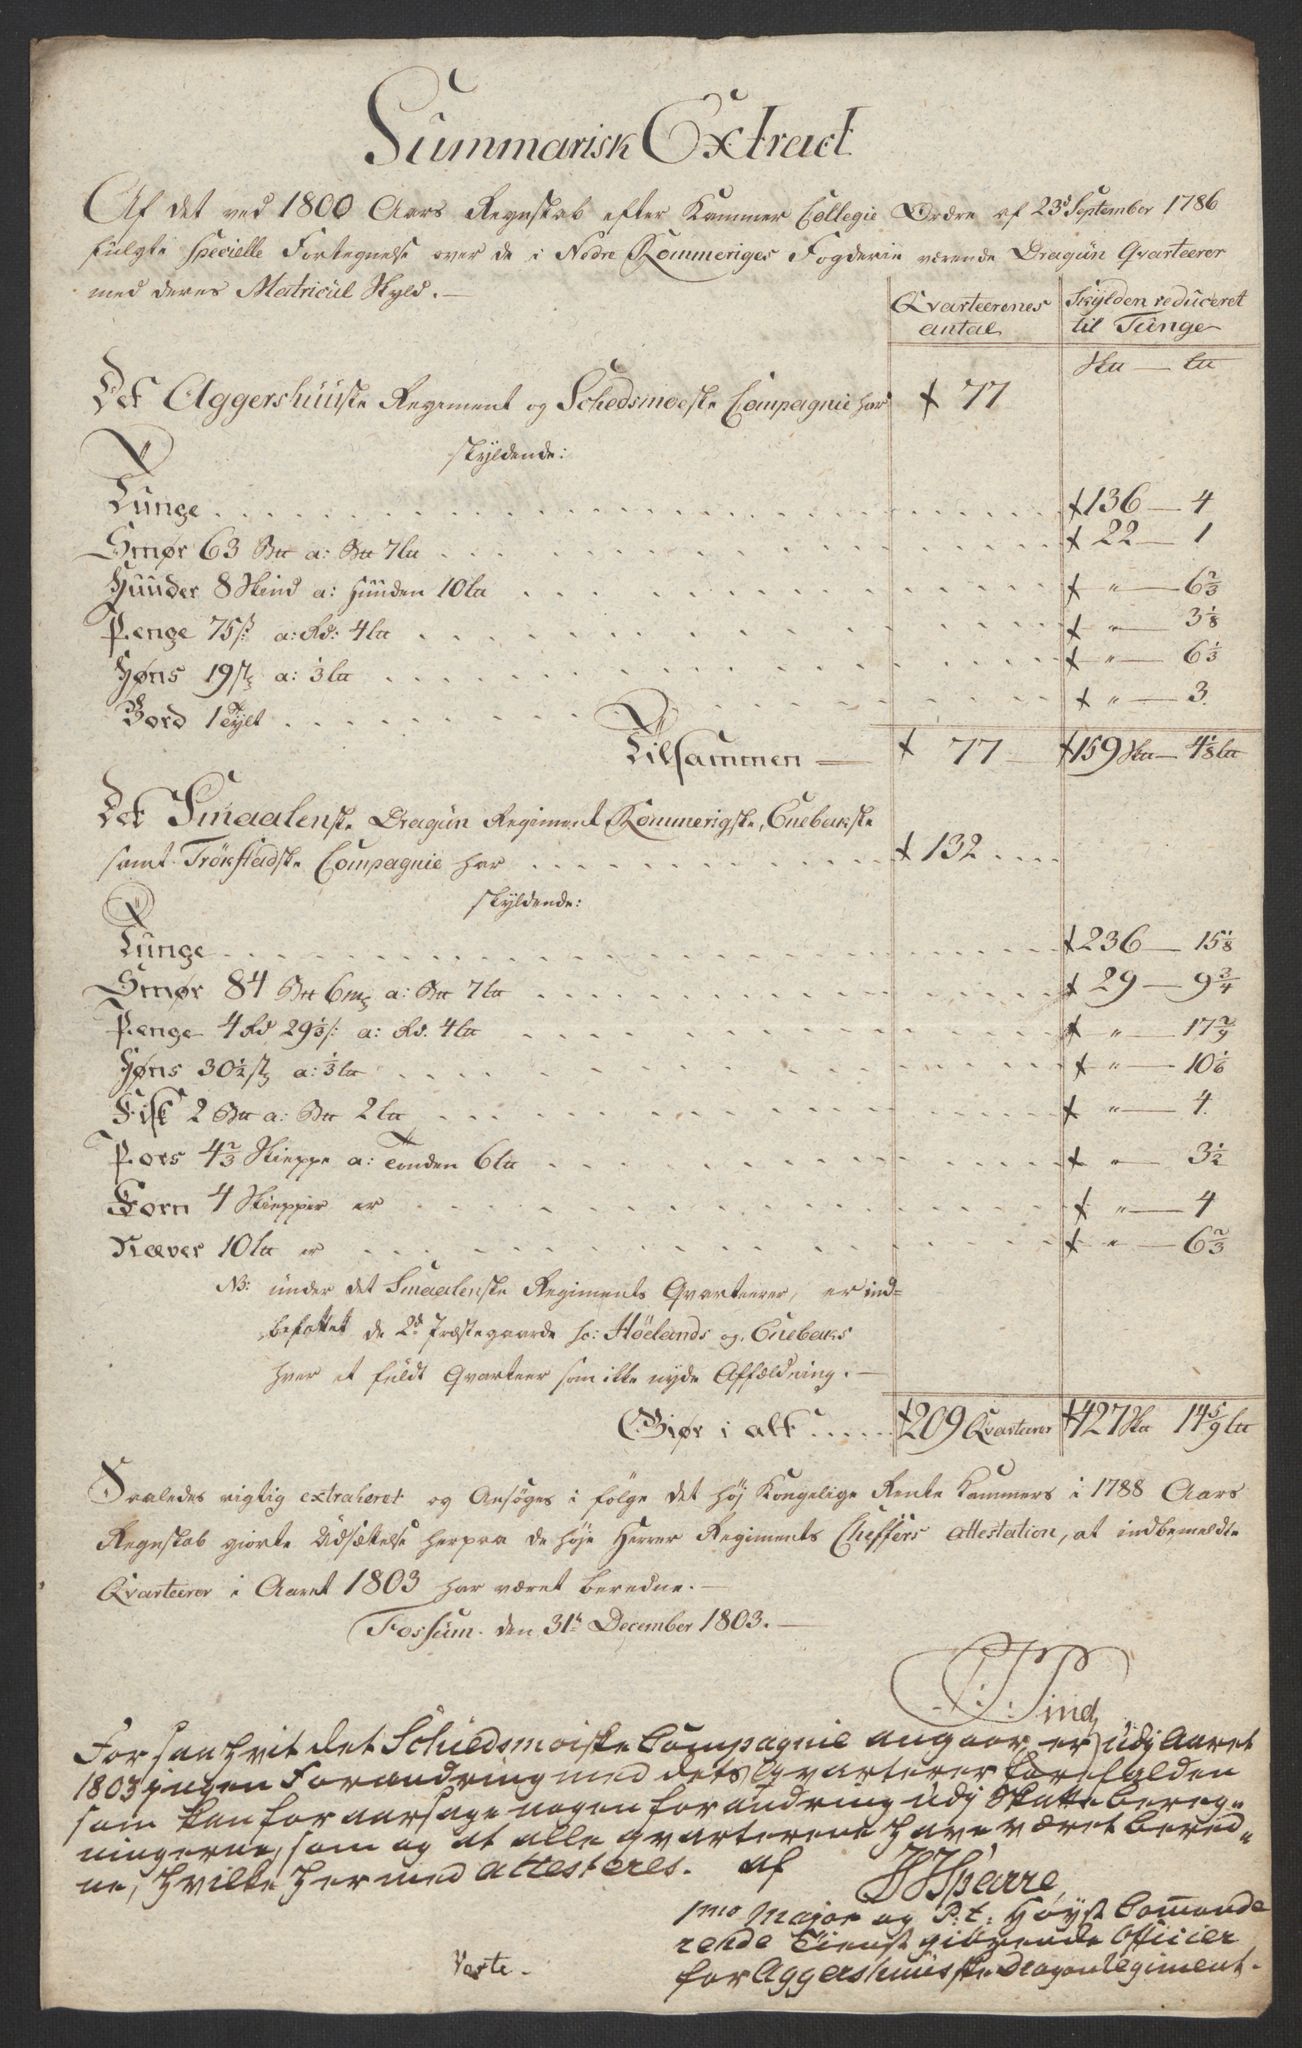 Summarisk Extract
Af det ved 1800 Aars Regnskab efter Kammer Collegie Ordre af 23d September 1786
fulgte specielle Fortegnelse over de i Nedre Rommeriges Fogderie værende Dragun Qvarteerer
med deres Matricul Skyld. —
Qvarteerenes antal
Skylden reduceret til Tunge
Det Aggershuuske Regiment og Schedsmoeske Compagnie har 77
skyldende:
Tunge 136 — 4
Smør 63 Btt a: Btt 7 ltt 22 — 1
Huuder 8 Skind a: Huuden 10 ltt " — 6 2/3
Penge 75 ß a: Rd: 4 ltt " — 3 1/8
Høns 19 st a: 1/3 ltt " — 6 1/3
Bord 1 Tylt " — 3
Tilsammen — 77 — 159 Skt — 4 1/8 ltt
Det Smaalenske Dragun Regiment, Rommerigske, Enebakske
samt Trökstadske Compagnie har 132
skyldende:
Tunge 236 — 15 1/8
Smør 84 Btt 6 mk a: Btt 7 ltt 29 — 9 3/4
Penge 4 Rd 29 1/3 ß a: Rd. 4 ltt " — 17 2/9
Høns 30 1/2 st a: 1/3 ltt " — 10 1/6
Fisk 2 Btt a: Btt 2 ltt " — 4
Pors 4 2/3 Skieppe a: Tønden 6 ltt " — 3 1/2
Korn 4 Skiepper er " — 4
Næver 10 ltt er " — 6 2/3
NB: under det Smaalenske Regiments Qvarteerer, er ind=
befattet de 2de Præstegaarde sc: Höelands og Enebaks
hver et fuldt Qvarteer som ikke nyde Affældning. —
Giør i alt 209 Qvarteerer 427 Skt 14 5/9 ltt
Saaledes rigtig extraheret og Ansøges i følge det høj Kongelige Rente Kammers i 1788 Aars
Regnskab giorte Udsættelse herpaa de høje Herrer Regiments Cheffers attestation, at indbemeldte
Qvarteerer i Aaret 1803 har været beredne. —
Fossum den 31te December 1803. —
Ind
For saa hvit det Schiedsmoiske Compagnie angaar, er udj Aaret
1803 jngen Forandring med dets Qvarterer forefalden
som kan foraarsage nogen forandring udj Skatte bereg=
ningerne, som og at alle qvarterene have været bered=
ne, hvilke her med attesteres. af
Sparre
1mo Major og P: t: Høyst Comande
rende Tienst giørende Officier
for Aggershuuiske Dragon Regiment.
Verte.